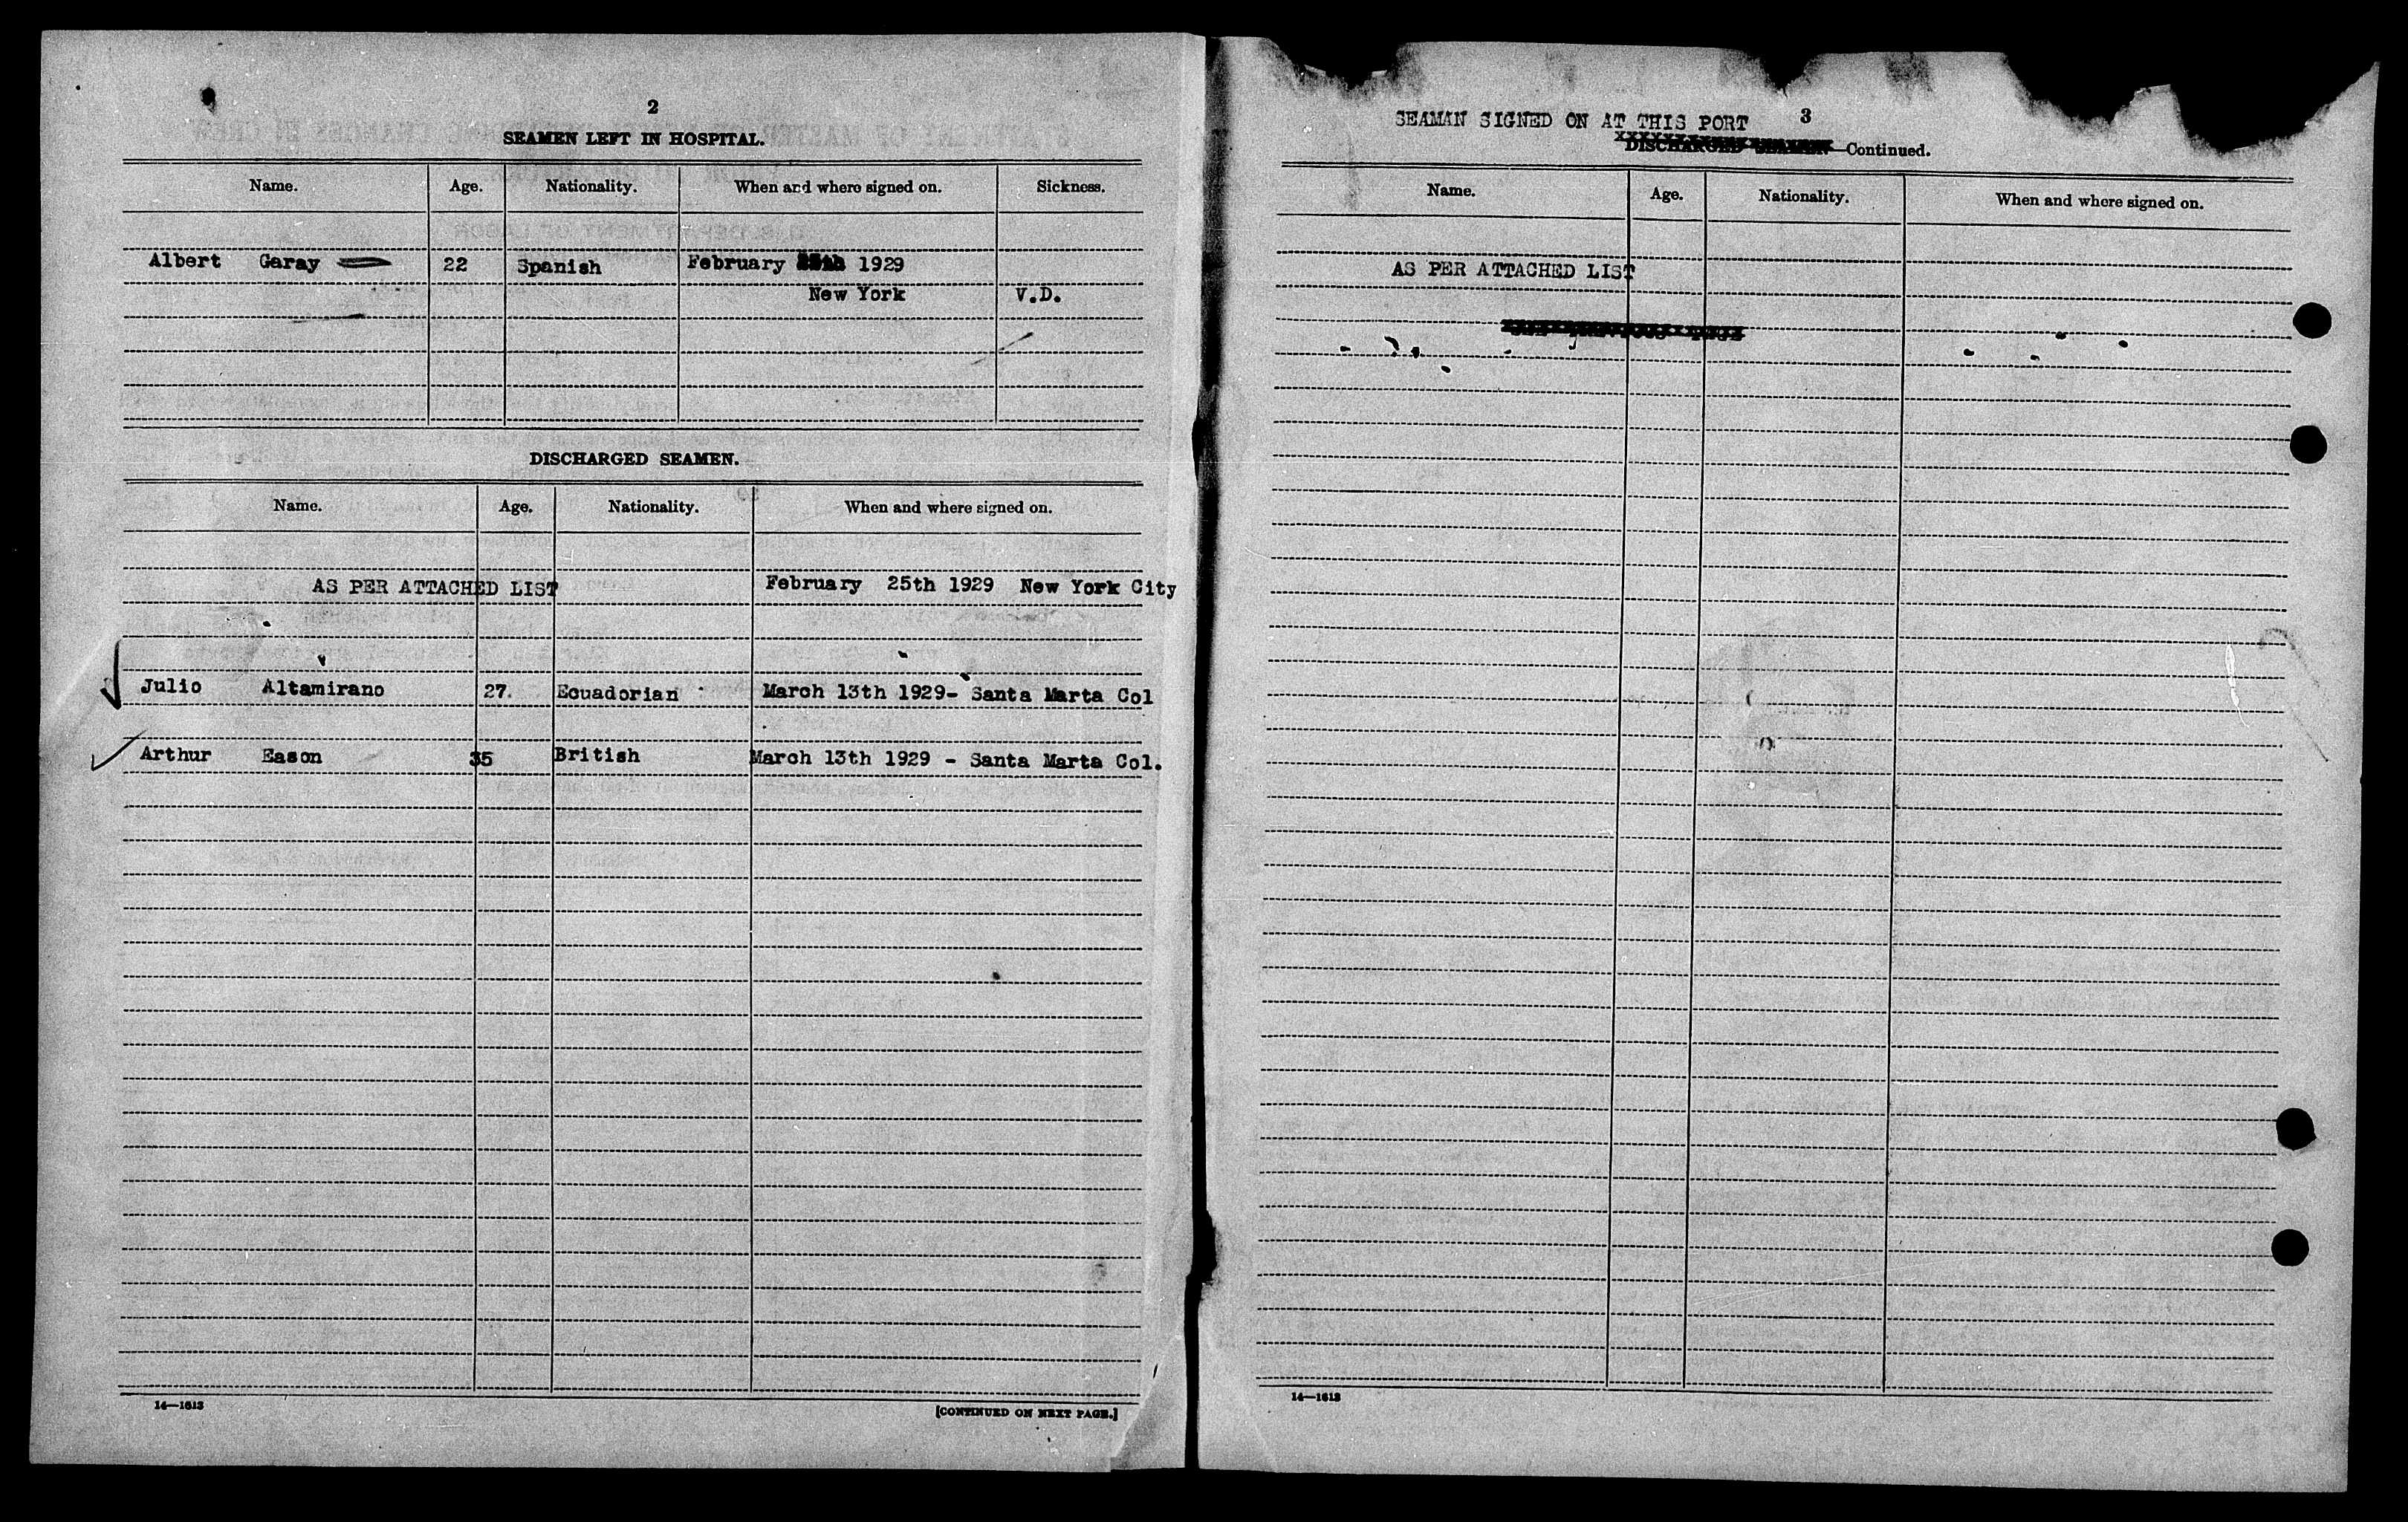 2
SEAMEN LEFT IN HOSPITAL.
Name. Age. Nationality. When and where signed on. Sickness.
Albert Garay 22 Spanish February 1929
New York V.D.
DISCHARGED SEAMEN.
Name. Age. Nationality. When and where signed on.
AS PER ATTACHED LIST February 25th 1929 New York City
Julio Altamirano 27. Ecuadorian March 13th 1929- Santa Marta Col
Arthur Eason 35 British March 13th 1929 - Santa Marta Col.
14—1613
[CONTINUED ON NEXT PAGE.]
SEAMAN SIGNED ON AT THIS PORT 3
DISCHARGED SEAMEN—Continued.
Name. Age. Nationality. When and where signed on.
AS PER ATTACHED LIST
14—1613